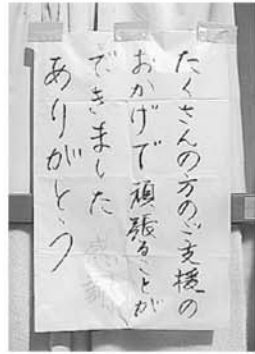 たくさんの方のご支援の
おかげで頑張ることが
できました
ありがとう
感謝